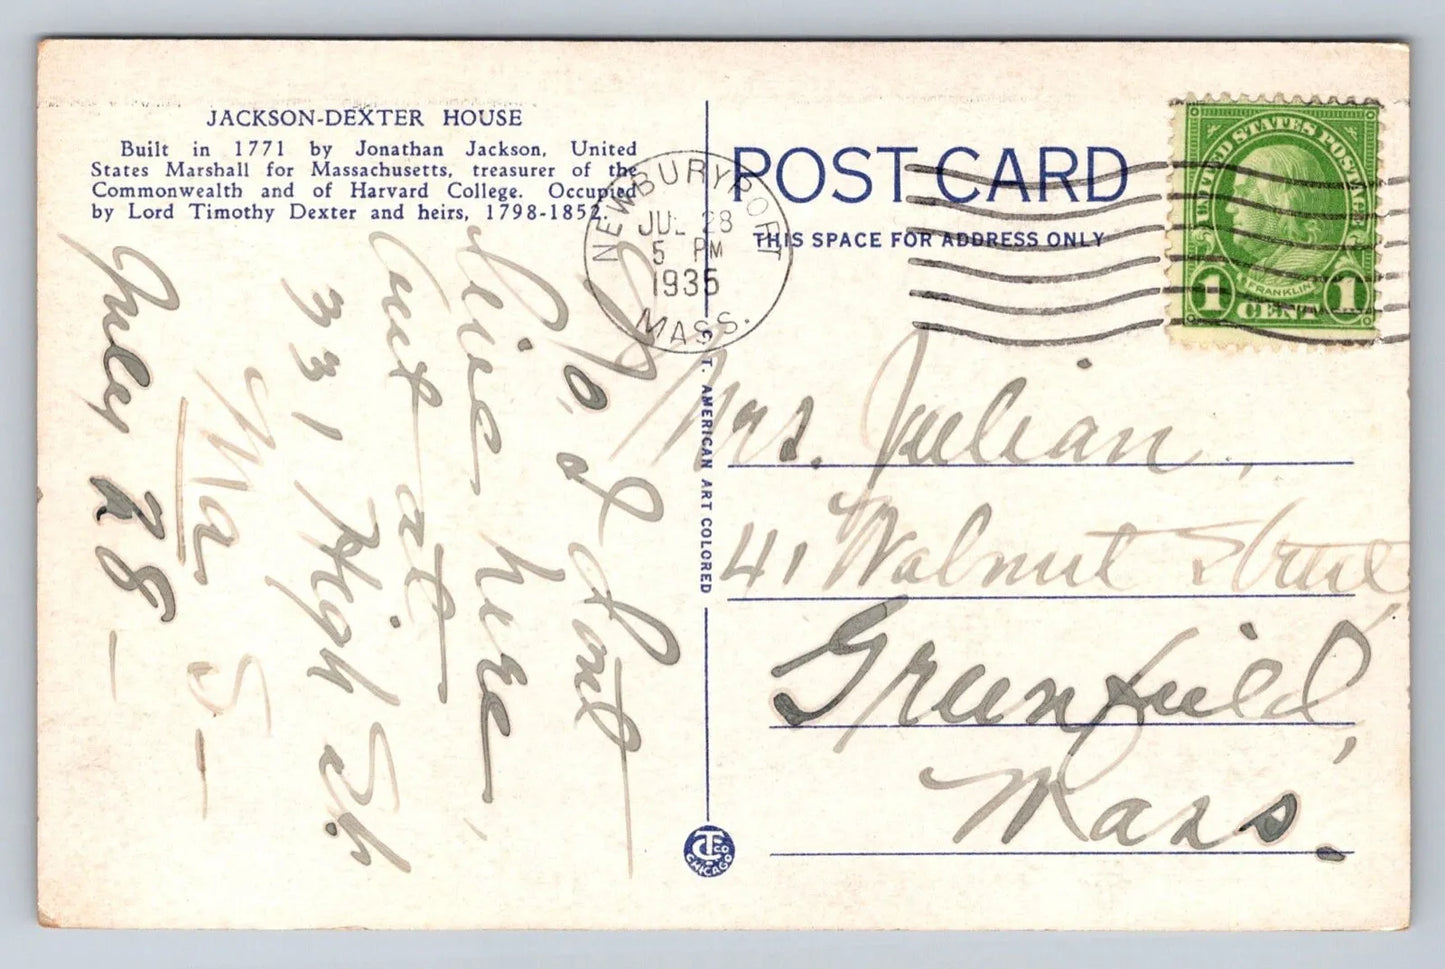 JACKSON-DEXTER HOUSE
Built in 1771 by Jonathan Jackson, United
States Marshall for Massachusetts, treasurer of the
Commonwealth and of Harvard College. Occupied
by Lord Timothy Dexter and heirs, 1798-1852.
No, I dont
live here,
Just at
331 High St.
Ma S-
July 28-
C. T. AMERICAN ART COLORED
CT CO
CHICAGO
NEWBURYPORT
JUL 28
5 PM
1935
MASS.
POST CARD
THIS SPACE FOR ADDRESS ONLY
UNITED STATES POSTAGE
FRANKLIN
1 CENT 1
Mrs. Julian,
41 Walnut Street,
Greenfield,
Mass.